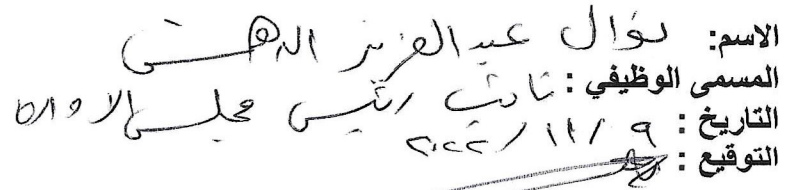 الاسم: نوال عبد العزيز الدهشتي
المسمى الوظيفي: نائب رئيس مجلس الادارة
التاريخ: ٩ / ١١ / ٢٠٢٢
التوقيع: